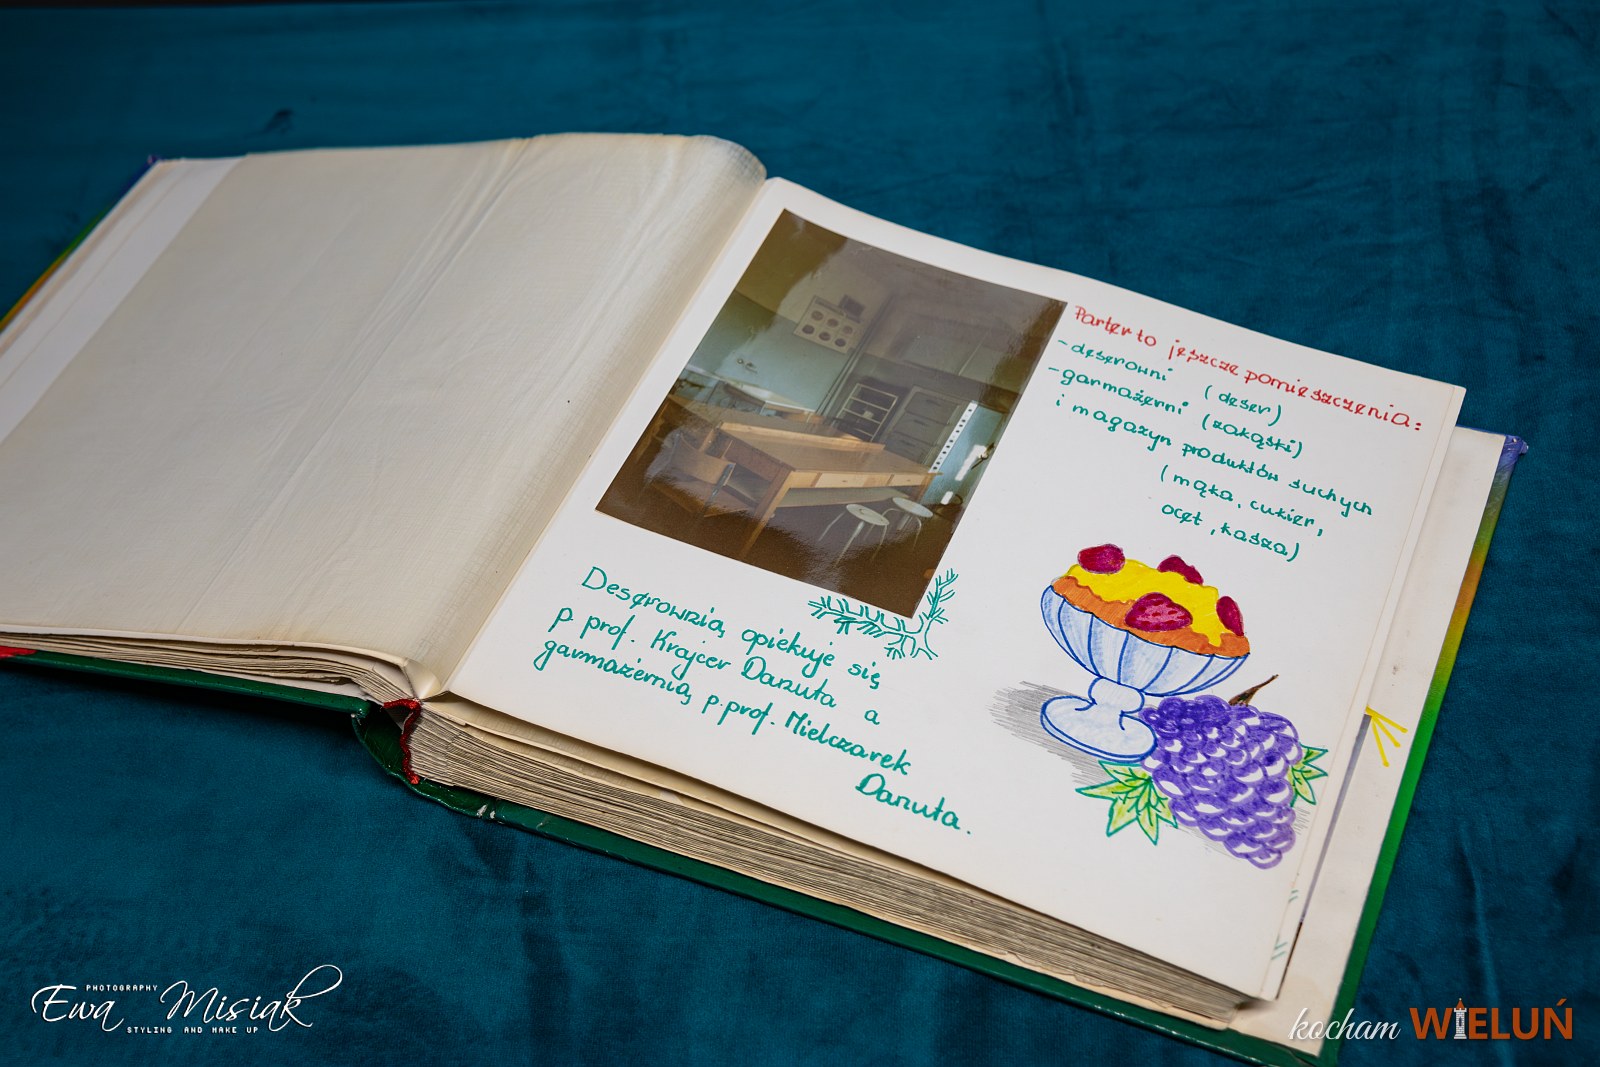 Parter to jeszcze pomieszczenia:
- deserowni (deser)
- garmażerni (zakąski)
i magazyn produktów suchych
(mąka, cukier,
ocet, kasza)
Deserownią opiekuje się
p. prof. Krajcer Danuta a
garmażernią p. prof. Mielczarek
Danuta.
PHOTOGRAPHY
Ewa Misiak
STYLING AND MAKE UP
kocham WIELUŃ